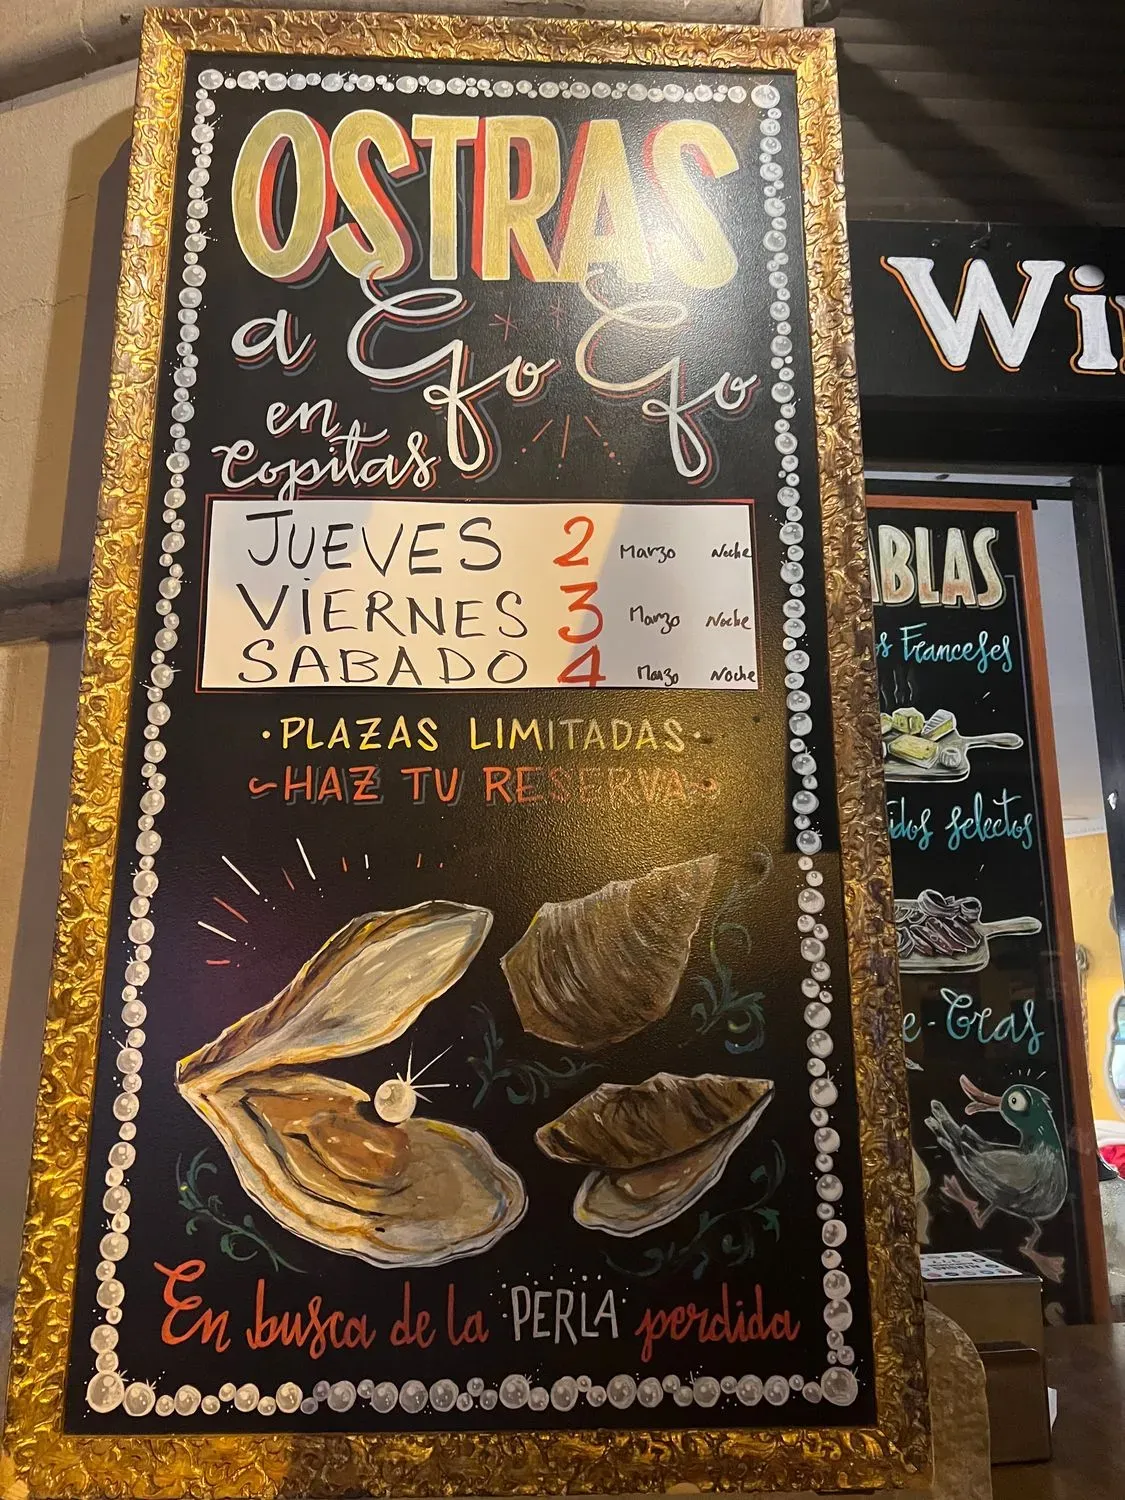 OSTRAS
a Go Go
en
Copitas
JUEVES 2 Marzo Noche
VIERNES 3 Marzo Noche
SABADO 4 Marzo Noche
·PLAZAS LIMITADAS·
~HAZ TU RESERVA~
En busca de la PERLA perdida
Wi
BLAS
os Franceses
idos selectos
e-Gras